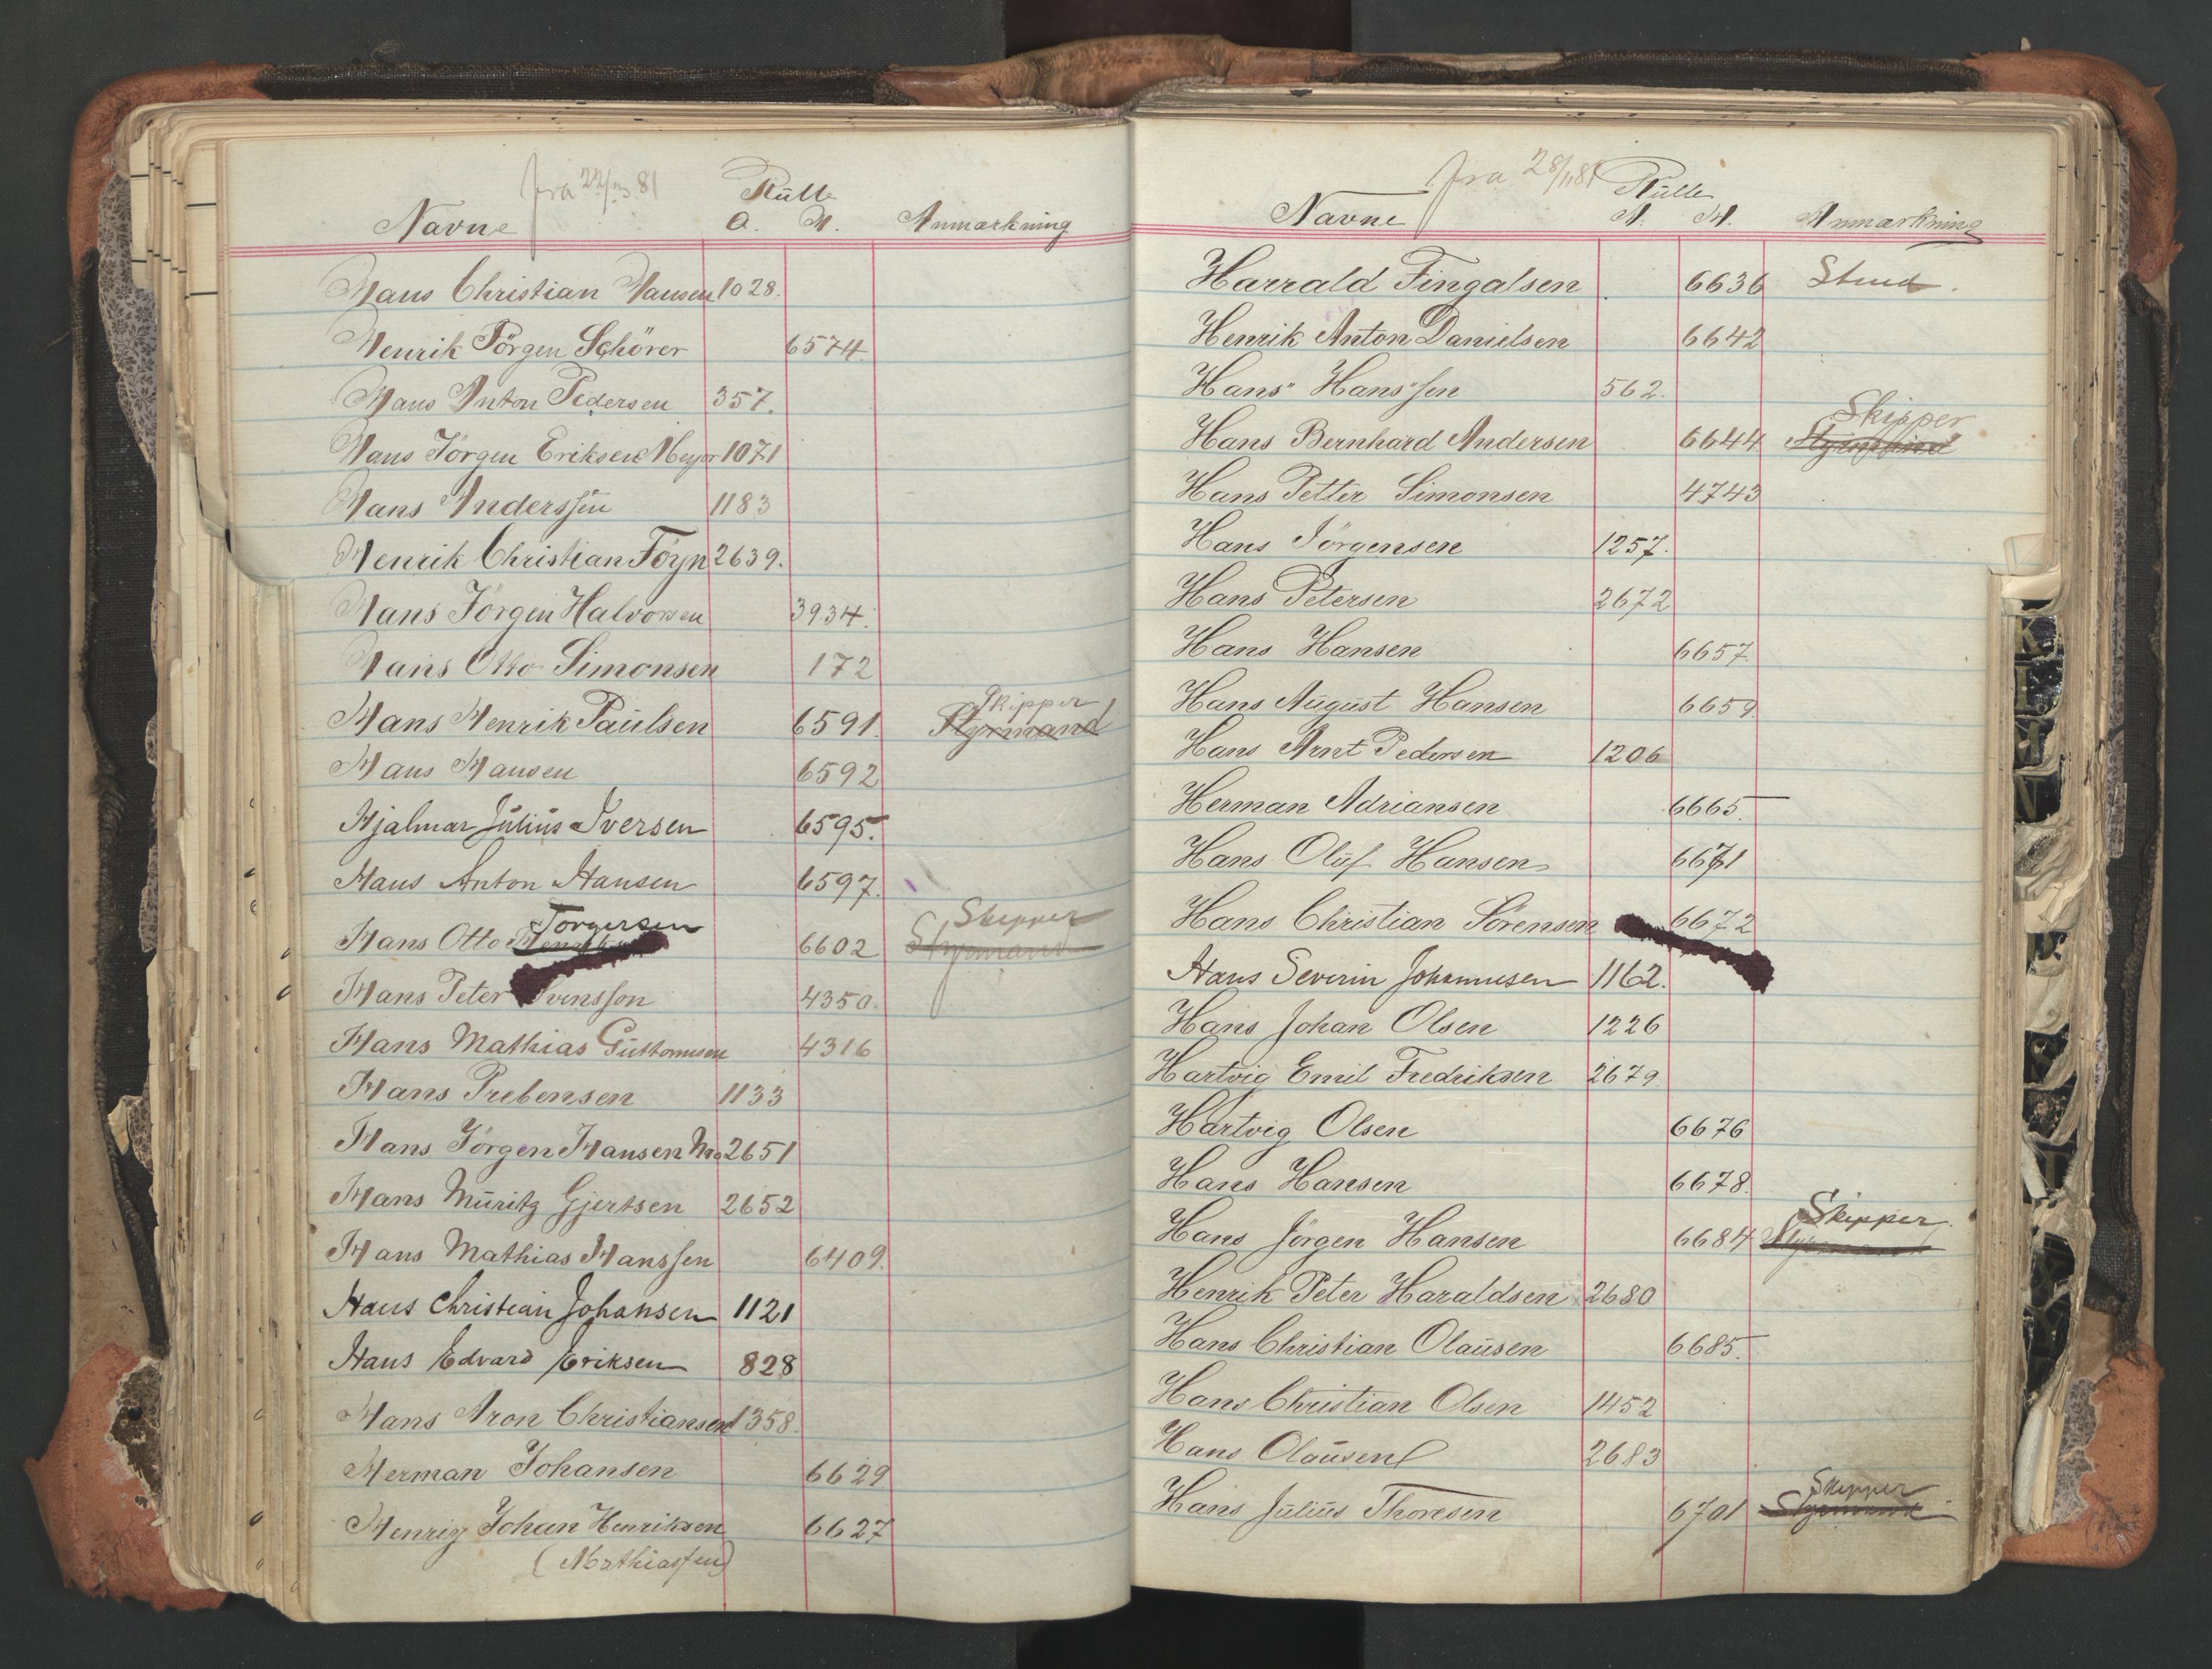 fra 22/3 81
Rülle
Navne A. H. Anmærkning
Hans Christian Hansen 1028.
Henrik Jörgen Schörer 6574.
Hans Anton Pedersen 357.
Hans Jörgen Eriksen Meyer 1071
Hans Anderssen 1183
Henrik Christian Foyn 2639.
Hans Jörgen Halvorsen 3934.
Hans Otto Simonsen 172
Skipper
Hans Henrik Paülsen 6591. Styrmand
Hans Hansen 6592
Hjalmar Jülius Iversen 6595.
Hans Anton Hansen 6597.
Torgersen Skipper
Hans Otto 6602 Styrmand
Hans Peter Svensson 4350.
Hans Mathias Güttormsen 4316
Hans Prebensen 1133
Hans Jörgen Hansen No 2651
Hans Müritz Gjertsen 2652
Hans Mathias Hanssen 6409.
Hans Christian Johansen 1121
Hans Edvard Eriksen 828
Hans Aron Christiansen 1358.
Herman Johansen 6629
Henrig Johan Henriksen 6627
(Mathiassen)
fra 28/11 81
Rülle
Navne A. H. Anmærkning
Harrald Fingalsen 6636 Stued.
Henrik Anton Danielsen 6642
Hans" Hans"sen 562.
Skipper
Hans Bernhard Andersen 6644. Styrmand
Hans Petter Simonsen 4743
Hans Jörgensen 1257.
Hans Petersen 2672
Hans Hansen 6657
Hans Aügüst Hansen 6659.
Hans Arnt Pedersen 1206
Herman Adriansen 6665.
Hans Olüf Hansen 6671
Hans Christian Sörensen 6672
Hans Severin Johannesen 1162.
Hans Johan Olsen 1226
Hartvig Emil Fredriksen 2679
Hartvig Olsen 6676
Hans Hansen 6678.
Skipper.
Hans Jörgen Hansen 6684 Styrmand
Henrik Peter Haraldsen 2680
Hans Christian Olaüsen 6685.
Hans Christian Olsen 1452
Hans Olaüsen 2683
Skipper
Hans Jülius Thoresen 6701 Styrmand